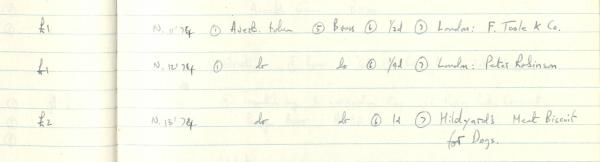 £1 N. 11 '74 ① Advert. token ⑤ Brass ⑥ 1/2d ⑦ London: F. Toole & Co.
£1 N. 12 '74 ① do do ⑥ 1/4d ⑦ London: Peter Robinson
£2 N. 13 '74 do do ⑥ 1d ⑦ Hildyard's Meat Biscuit
for Dogs.